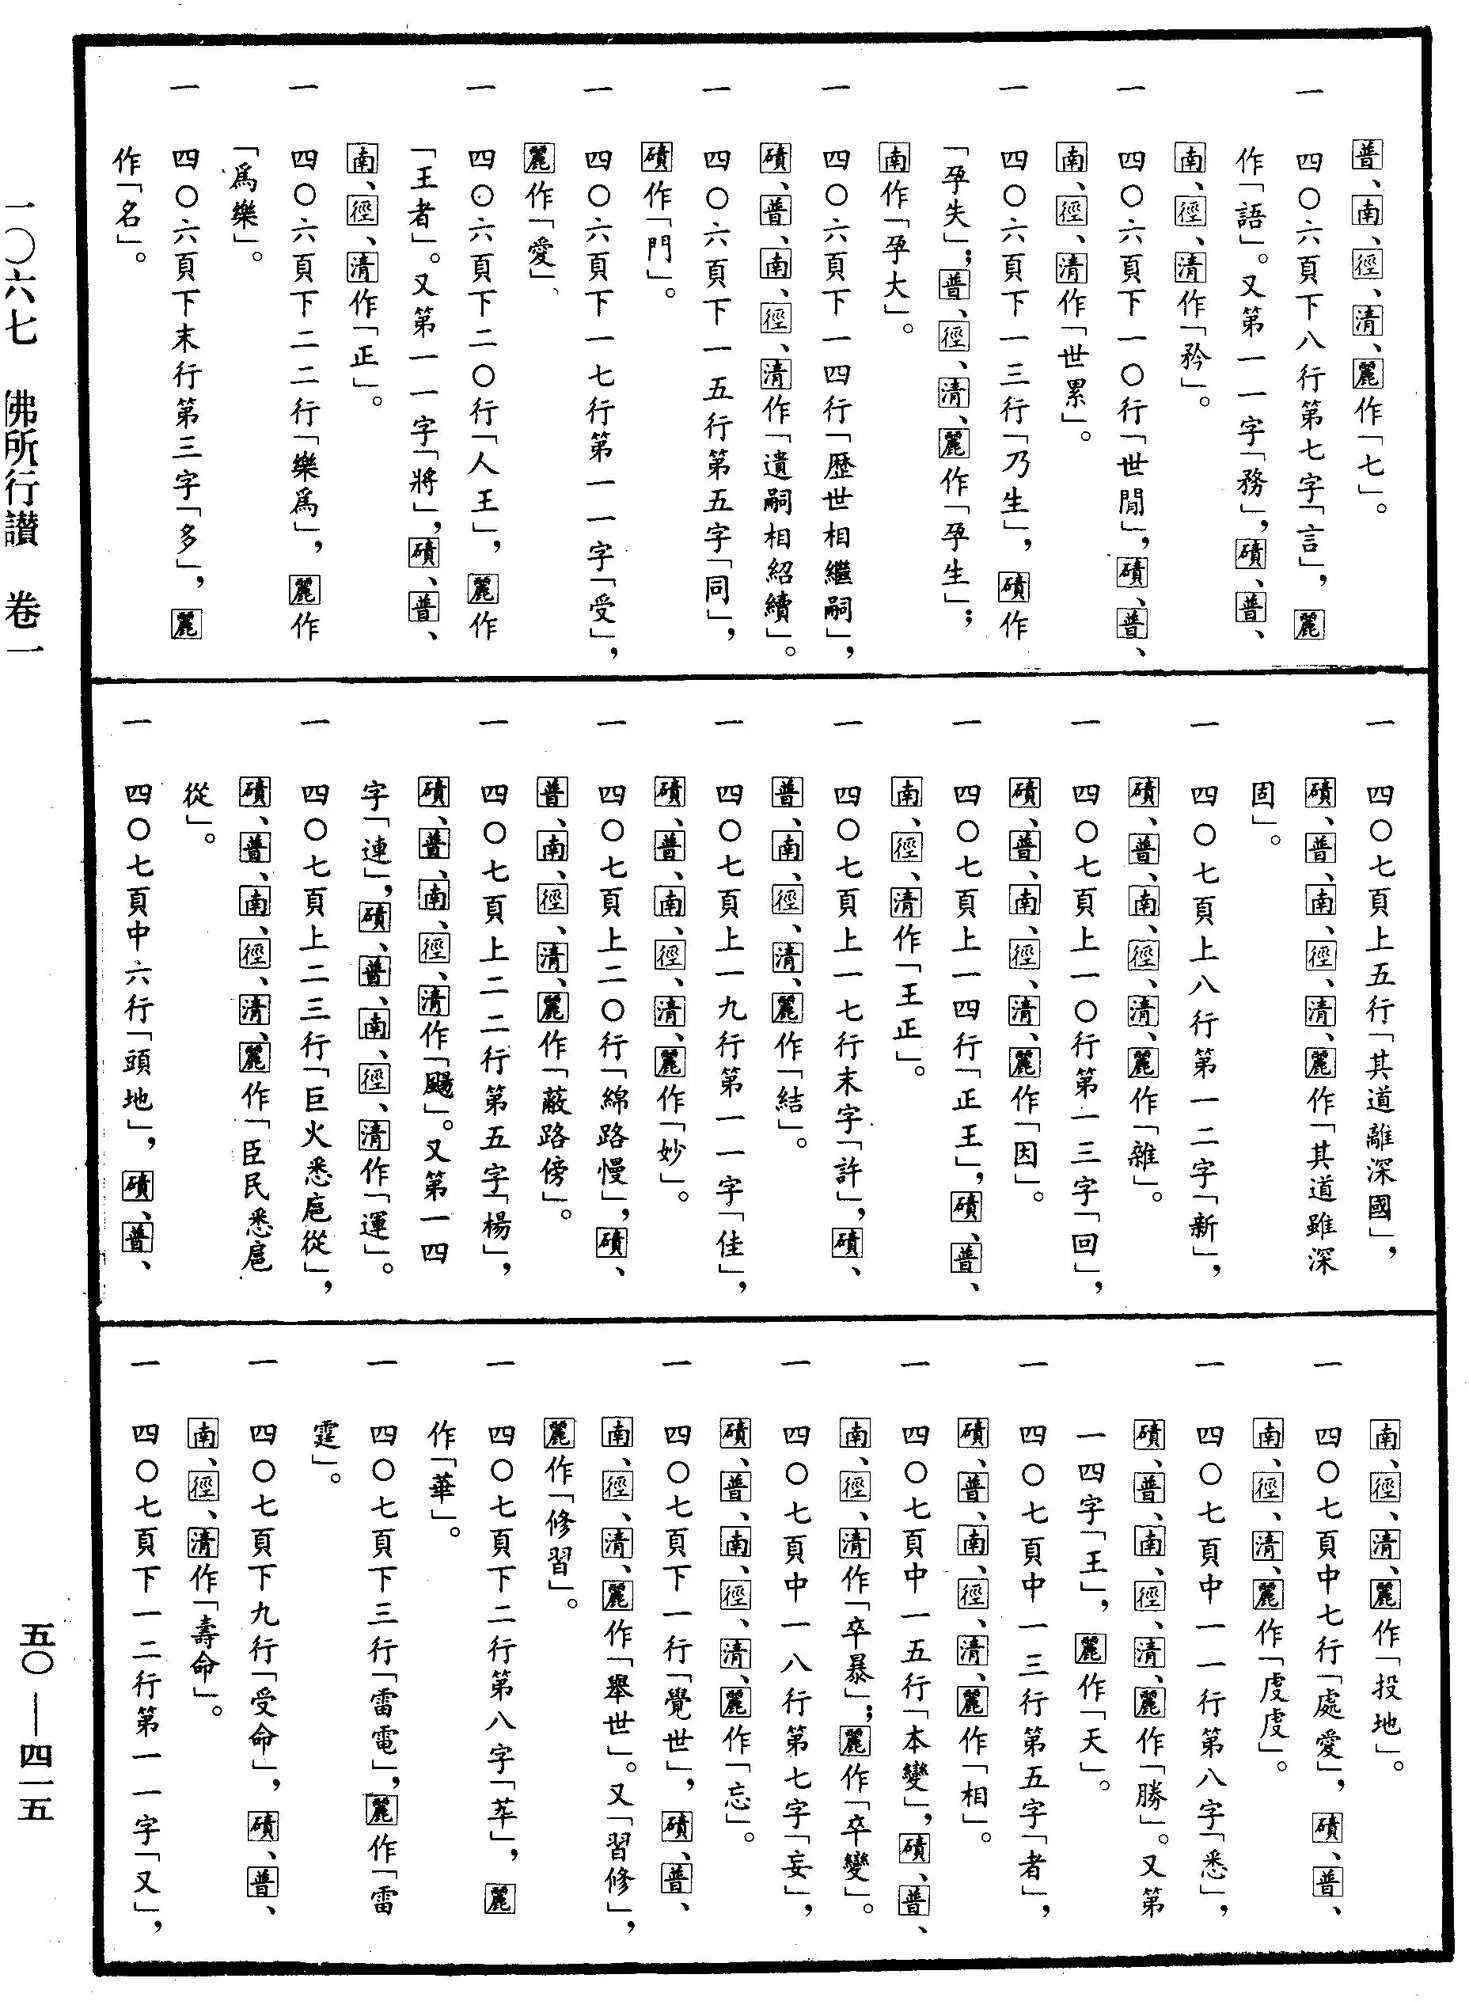 普、南、徑、清、麗作「七」。
一 四〇六頁下八行第七字「言」，麗
作「語」。又第一一字「務」，磧、普、
南、徑、清作「矜」。
一 四〇六頁下一〇行「世間」，磧、普、
南、徑、清作「世累」。
一 四〇六頁下一三行「乃生」，磧作
「孕失」；普、徑、清、麗作「孕生」；
南作「孕大」。
一 四〇六頁下一四行「歷世相繼嗣」，
磧、普、南、徑、清作「遺嗣相紹續」。
一 四〇六頁下一五行第五字「同」，
磧作「門」。
一 四〇六頁下一七行第一一字「受」，
麗作「愛」、
一 四〇六頁下二〇行「人王」，麗作
「王者」。又第一一字「將」，磧、普、
南、徑、清作「正」。
一 四〇六頁下二二行「樂爲」，麗作
「爲樂」。
一 四〇六頁下末行第三字「多」，麗
作「名」。
一 四〇七頁上五行「其道離深國」，
磧、普、南、徑、清、麗作「其道雖深
固」。
一 四〇七頁上八行第一二字「新」，
磧、普、南、徑、清、麗作「雜」。
一 四〇七頁上一〇行第一三字「回」，
磧、普、南、徑、清、麗作「因」。
一 四〇七頁上一四行「正王」，磧、普、
南、徑、清作「王正」。
一 四〇七頁上一七行末字「許」，磧、
普、南、徑、清、麗作「結」。
一 四〇七頁上一九行第一一字「佳」，
磧、普、南、徑、清、麗作「妙」。
一 四〇七頁上二〇行「綿路慢」，磧、
普、南、徑、清、麗作「蔽路傍」。
一 四〇七頁上二二行第五字「楊」，
磧、普、南、徑、清作「颺」。又第一四
字「連」，磧、普、南、徑、清作「運」。
一 四〇七頁上二三行「巨火悉扈從」，
磧、普、南、徑、清、麗作「臣民悉扈
從」。
一 四〇七頁中六行「頭地」，磧、普、
南、徑、清、麗作「投地」。
一 四〇七頁中七行「處愛」，磧、普、
南、徑、清、麗作「虔虔」。
一 四〇七頁中一一行第八字「悉」，
磧、普、南、徑、清、麗作「勝」。又第
一四字「王」，麗作「天」。
一 四〇七頁中一三行第五字「者」，
磧、普、南、徑、清、麗作「相」。
一 四〇七頁中一五行「本變」，磧、普、
南、徑、清作「卒暴」；麗作「卒變」。
一 四〇七頁中一八行第七字「妄」，
磧、普、南、徑、清、麗作「忘」。
一 四〇七頁下一行「覺世」，磧、普、
南、徑、清、麗作「舉世」。又「習修」，
麗作「修習」。
一 四〇七頁下二行第八字「苹」，麗
作「華」。
一 四〇七頁下三行「雷電」，麗作「雷
霆」。
一 四〇七頁下九行「受命」，磧、普、
南、徑、清作「壽命」。
一 四〇七頁下一二行第一一字「又」，
一〇六七 佛所行讃 卷一
五〇——四一五